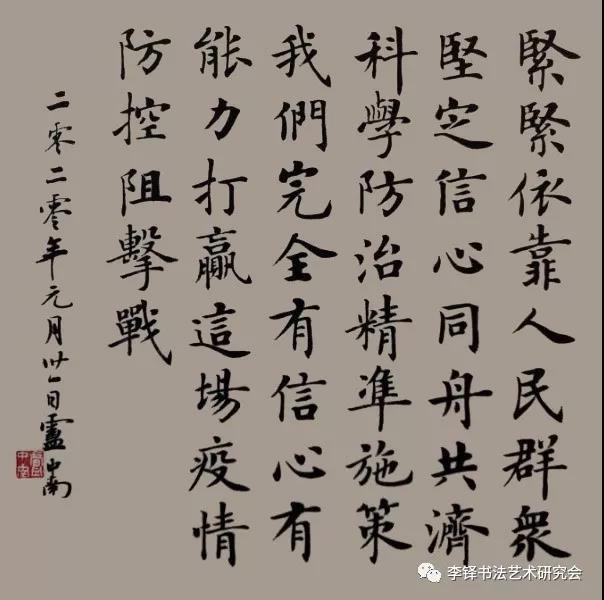 緊緊依靠人民群衆
堅定信心同舟共濟
科學防治精準施策
我們完全有信心有
能力打贏這場疫情
防控阻擊戰
二零二零年元月卅一日盧中南
李铎书法艺术研究会